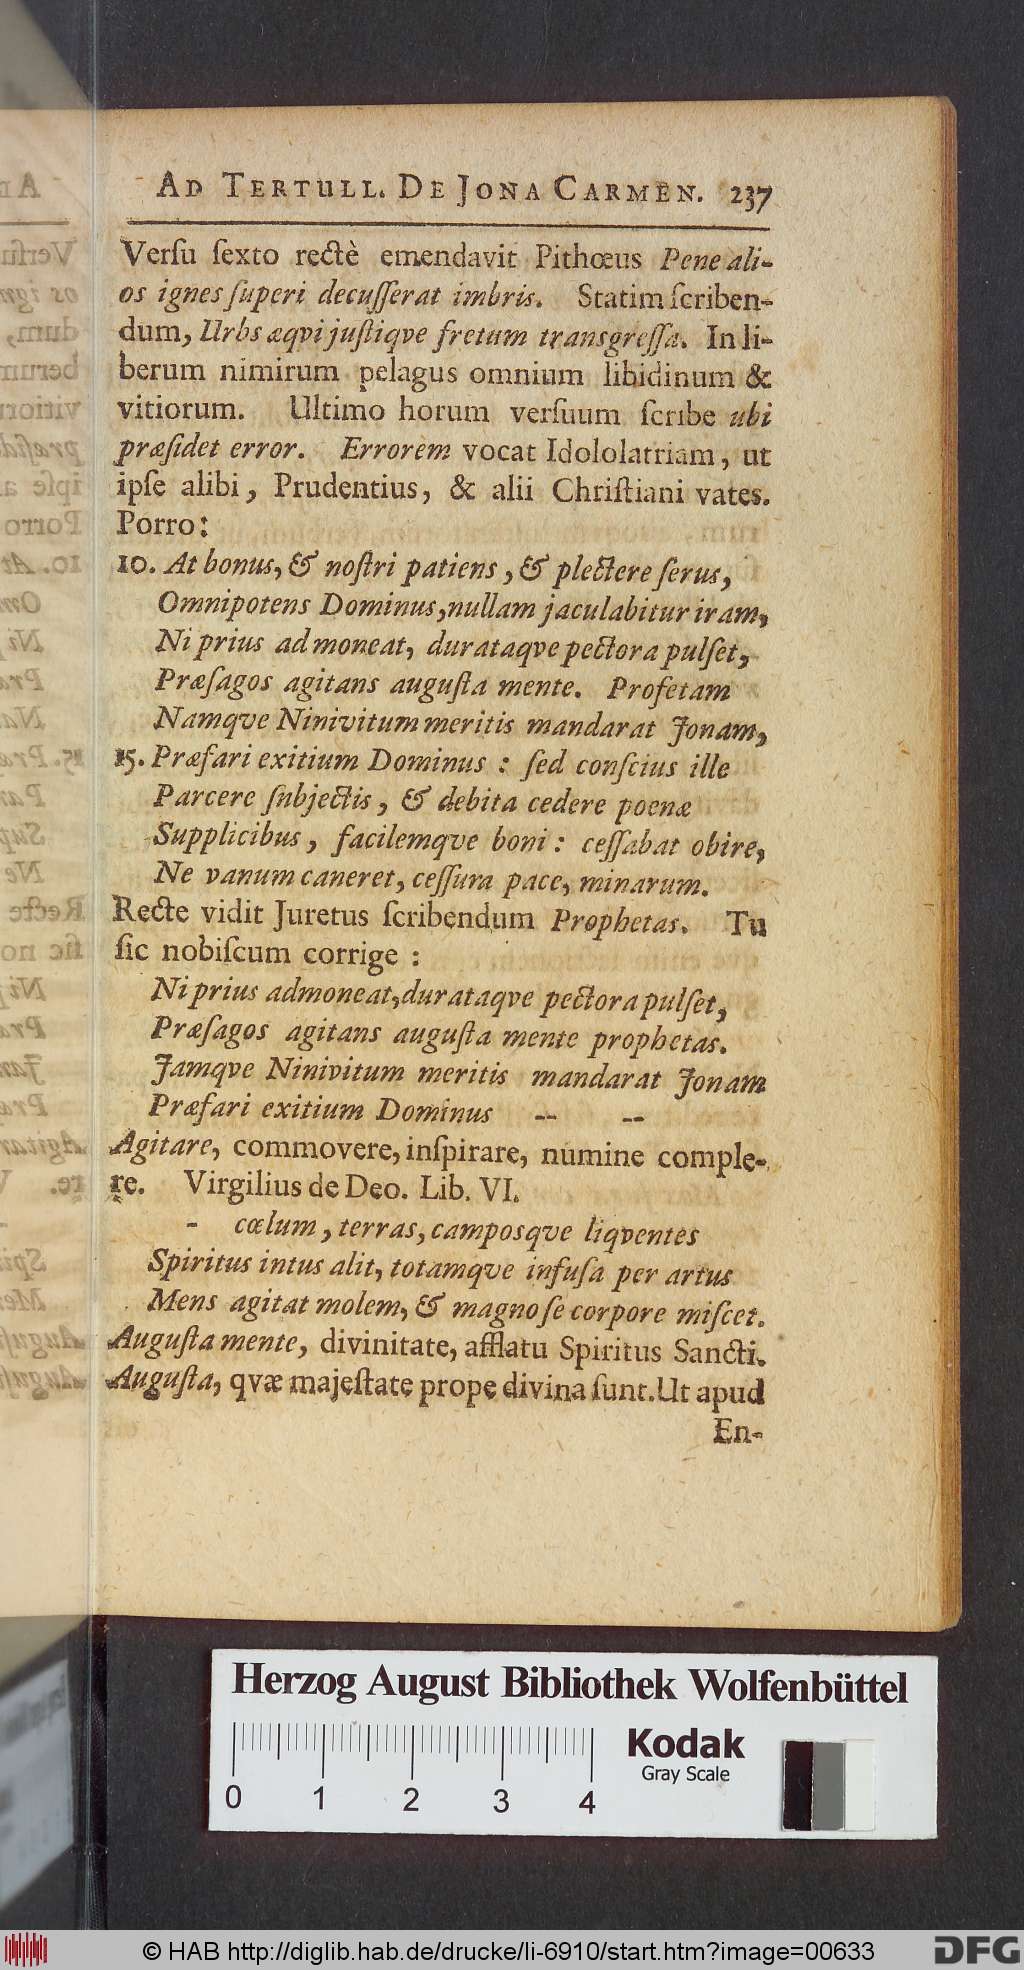 AD TERTULL. DE JONA CARMEN. 237
Verſu ſexto rectè emendavit Pithœus Pene ali-
os ignes ſuperi decuſſerat imbris. Statim ſcriben-
dum, Urbs æqvi juſtiqve fretum transgreſſa. In li-
berum nimirum pelagus omnium libidinum &
vitiorum. Ultimo horum verſuum ſcribe ubi
præſidet error. Errorem vocat Idololatriam, ut
ipſe alibi, Prudentius, & alii Chriſtiani vates.
Porro:
10. At bonus, & noſtri patiens, & plectere ſerus,
Omnipotens Dominus, nullam jaculabitur iram,
Ni prius admoneat, durataqve pectora pulſet,
Præſagos agitans auguſta mente. Profetam
Namqve Ninivitum meritis mandarat Jonam,
15. Præfari exitium Dominus: ſed conſcius ille
Parcere ſubjectis, & debita cedere poenæ
Supplicibus, facilemqve boni: ceſſabat obire,
Ne vanum caneret, ceſſura pace, minarum.
Recte vidit Juretus ſcribendum Prophetas. Tu
ſic nobiſcum corrige:
Ni prius admoneat, durataqve pectora pulſet,
Præſagos agitans auguſta mente prophetas.
Jamqve Ninivitum meritis mandarat Jonam
Præfari exitium Dominus -- --
Agitare, commovere, inſpirare, numine comple-
re. Virgilius de Deo. Lib. VI.
- cœlum, terras, camposqve liqventes
Spiritus intus alit, totamqve infuſa per artus
Mens agitat molem, & magno ſe corpore miſcet.
Auguſta mente, divinitate, afflatu Spiritus Sancti.
Auguſta, qvæ majeſtate prope divina ſunt. Ut apud
En-
Herzog August Bibliothek Wolfenbüttel
0 1 2 3 4
Kodak
Gray Scale
© HAB http://diglib.hab.de/drucke/li-6910/start.htm?image=00633
DFG